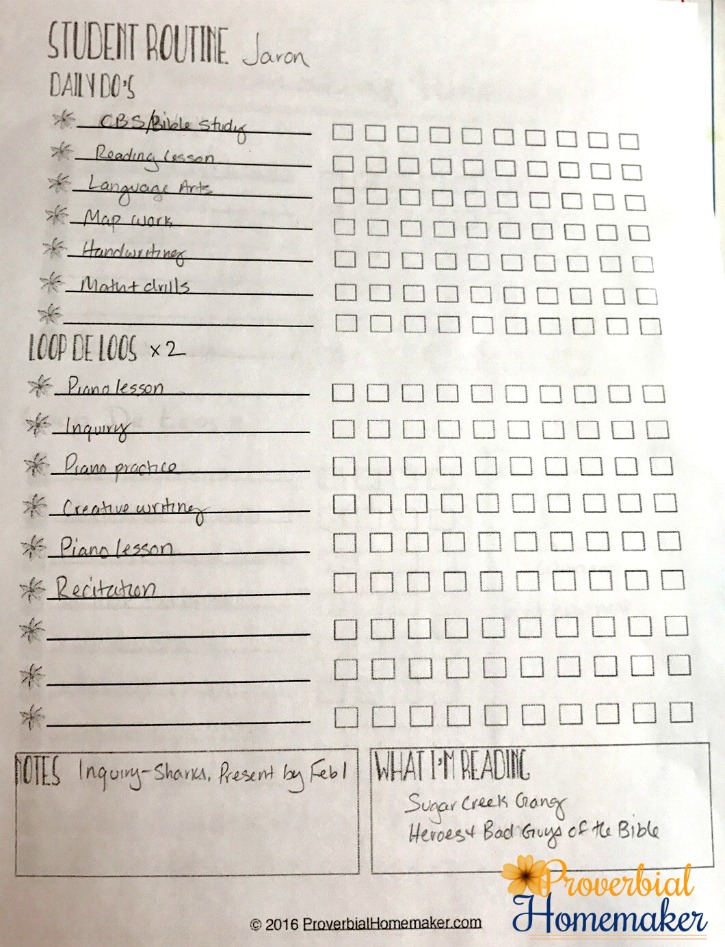 STUDENT ROUTINE Jaron
DAILY DO'S
CBS/Bible Study
Reading Lesson
Language Arts
Map work
Handwriting
Math + drills
LOOP DE LOOS x2
Piano lesson
Inquiry
Piano practice
Creative writing
Piano lesson
Recitation
NOTES Inquiry-Sharks, Present by Feb 1
WHAT I'M READING
Sugar Creek Gang
Heroes + Bad Guys of the Bible
Proverbial
Homemaker
© 2016 ProverbialHomemaker.com